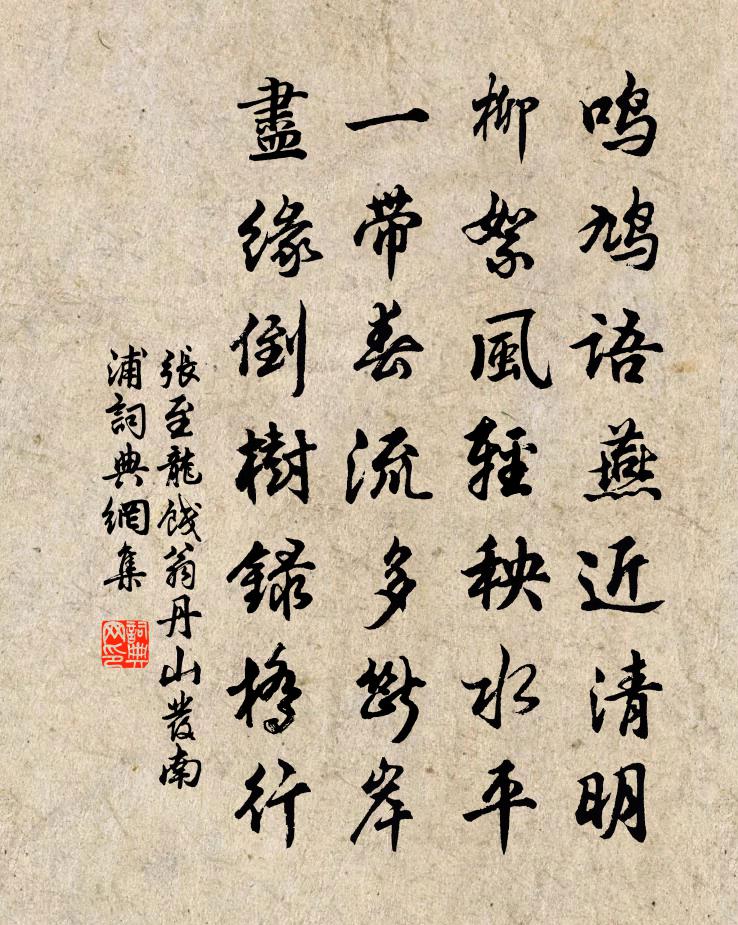 鳴鳩語燕近清明
柳絮風輕秧水平
一帶春流多斷岸
盡緣倒樹錄橋行
張至龍餞翁丹山發南
浦詞典網集
詞典網印